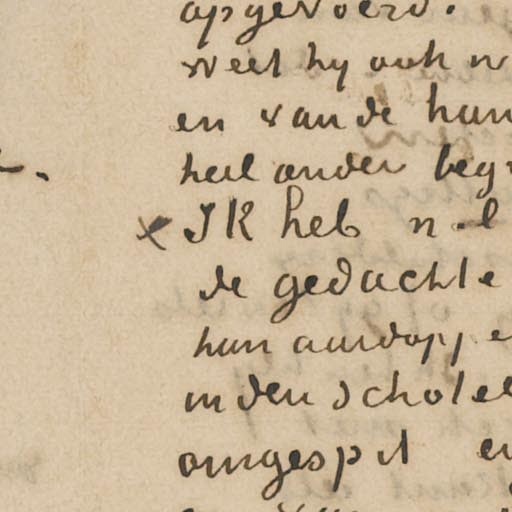 opgevoerd.
weet hy ook n
en van de han
heel ander begr
x Ik heb n l
de gedachte
hun aardappe
in den schotel
omgespit en